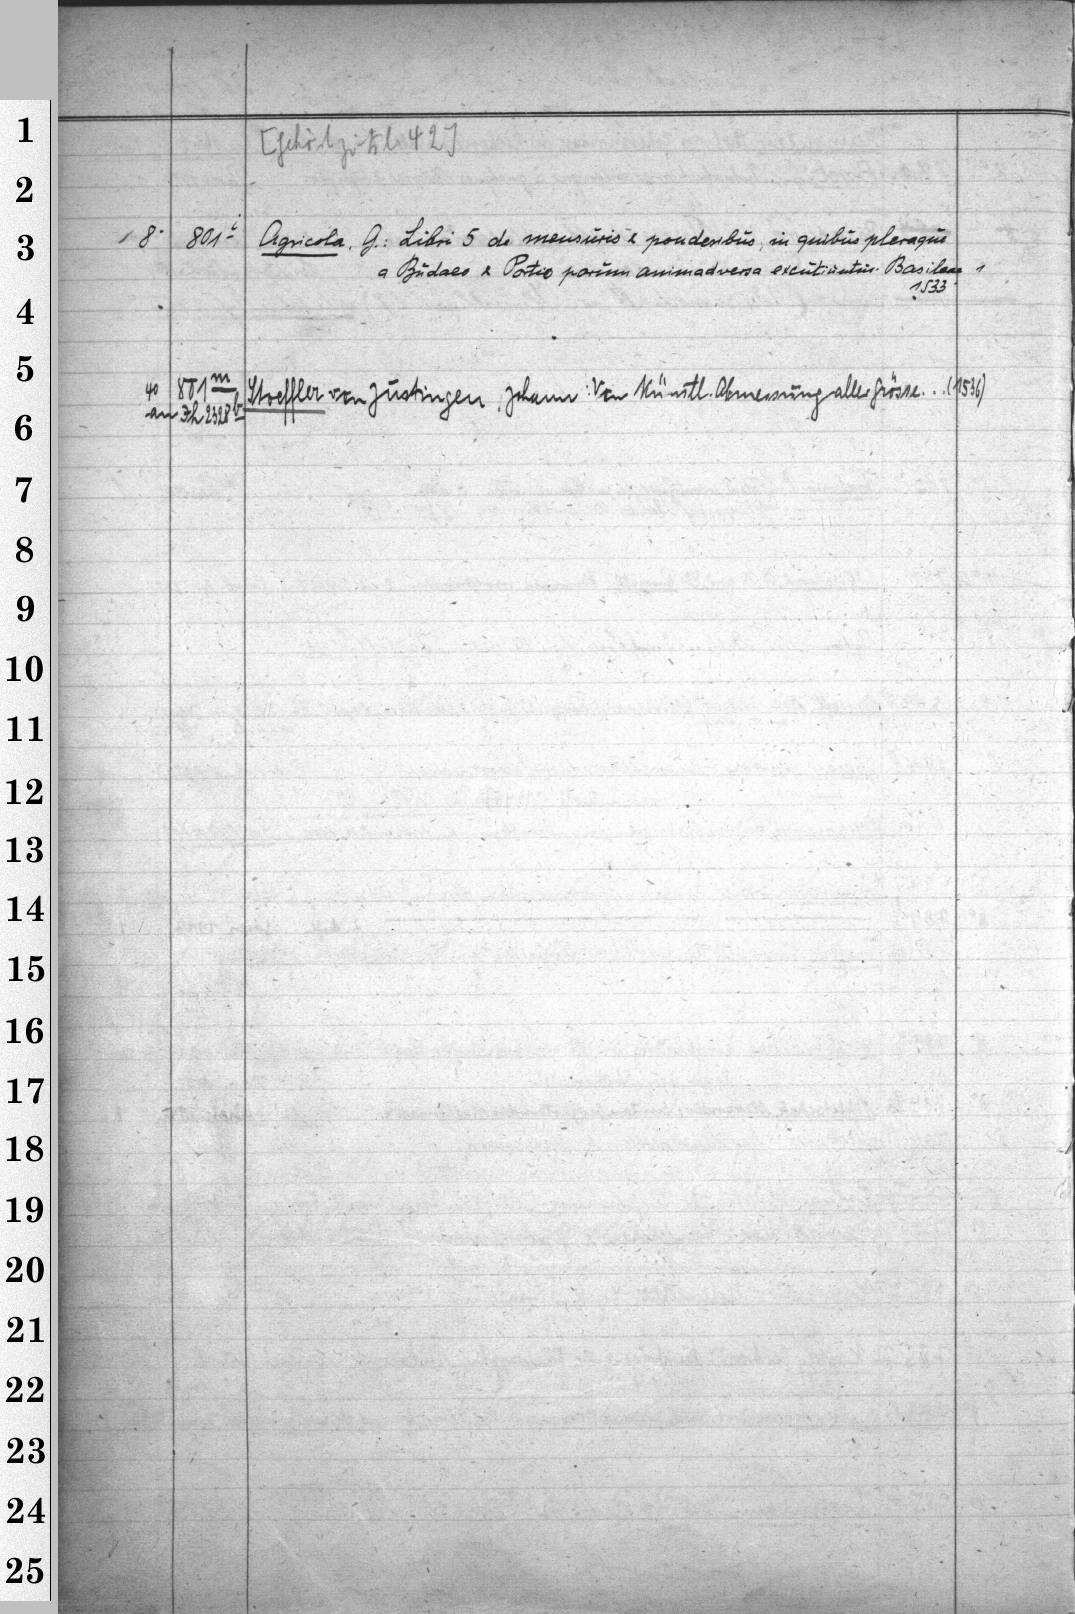 1
[gehört zu Bl 42]
2
3
8° 801 i Agricola, G.: Libri 5 de mensuris & ponderibus, in quibus pleraque
a Budaeo & Portio parum animadversa excutiuntur. Basileae 1
1533
4
5
4° 801 m Stoeffler von Justingen, Johann: Von Künstl. Abmessung aller Grösse... (1536)
an
6
7
8
9
10
11
12
13
14
15
16
17
18
19
20
21
22
23
24
25